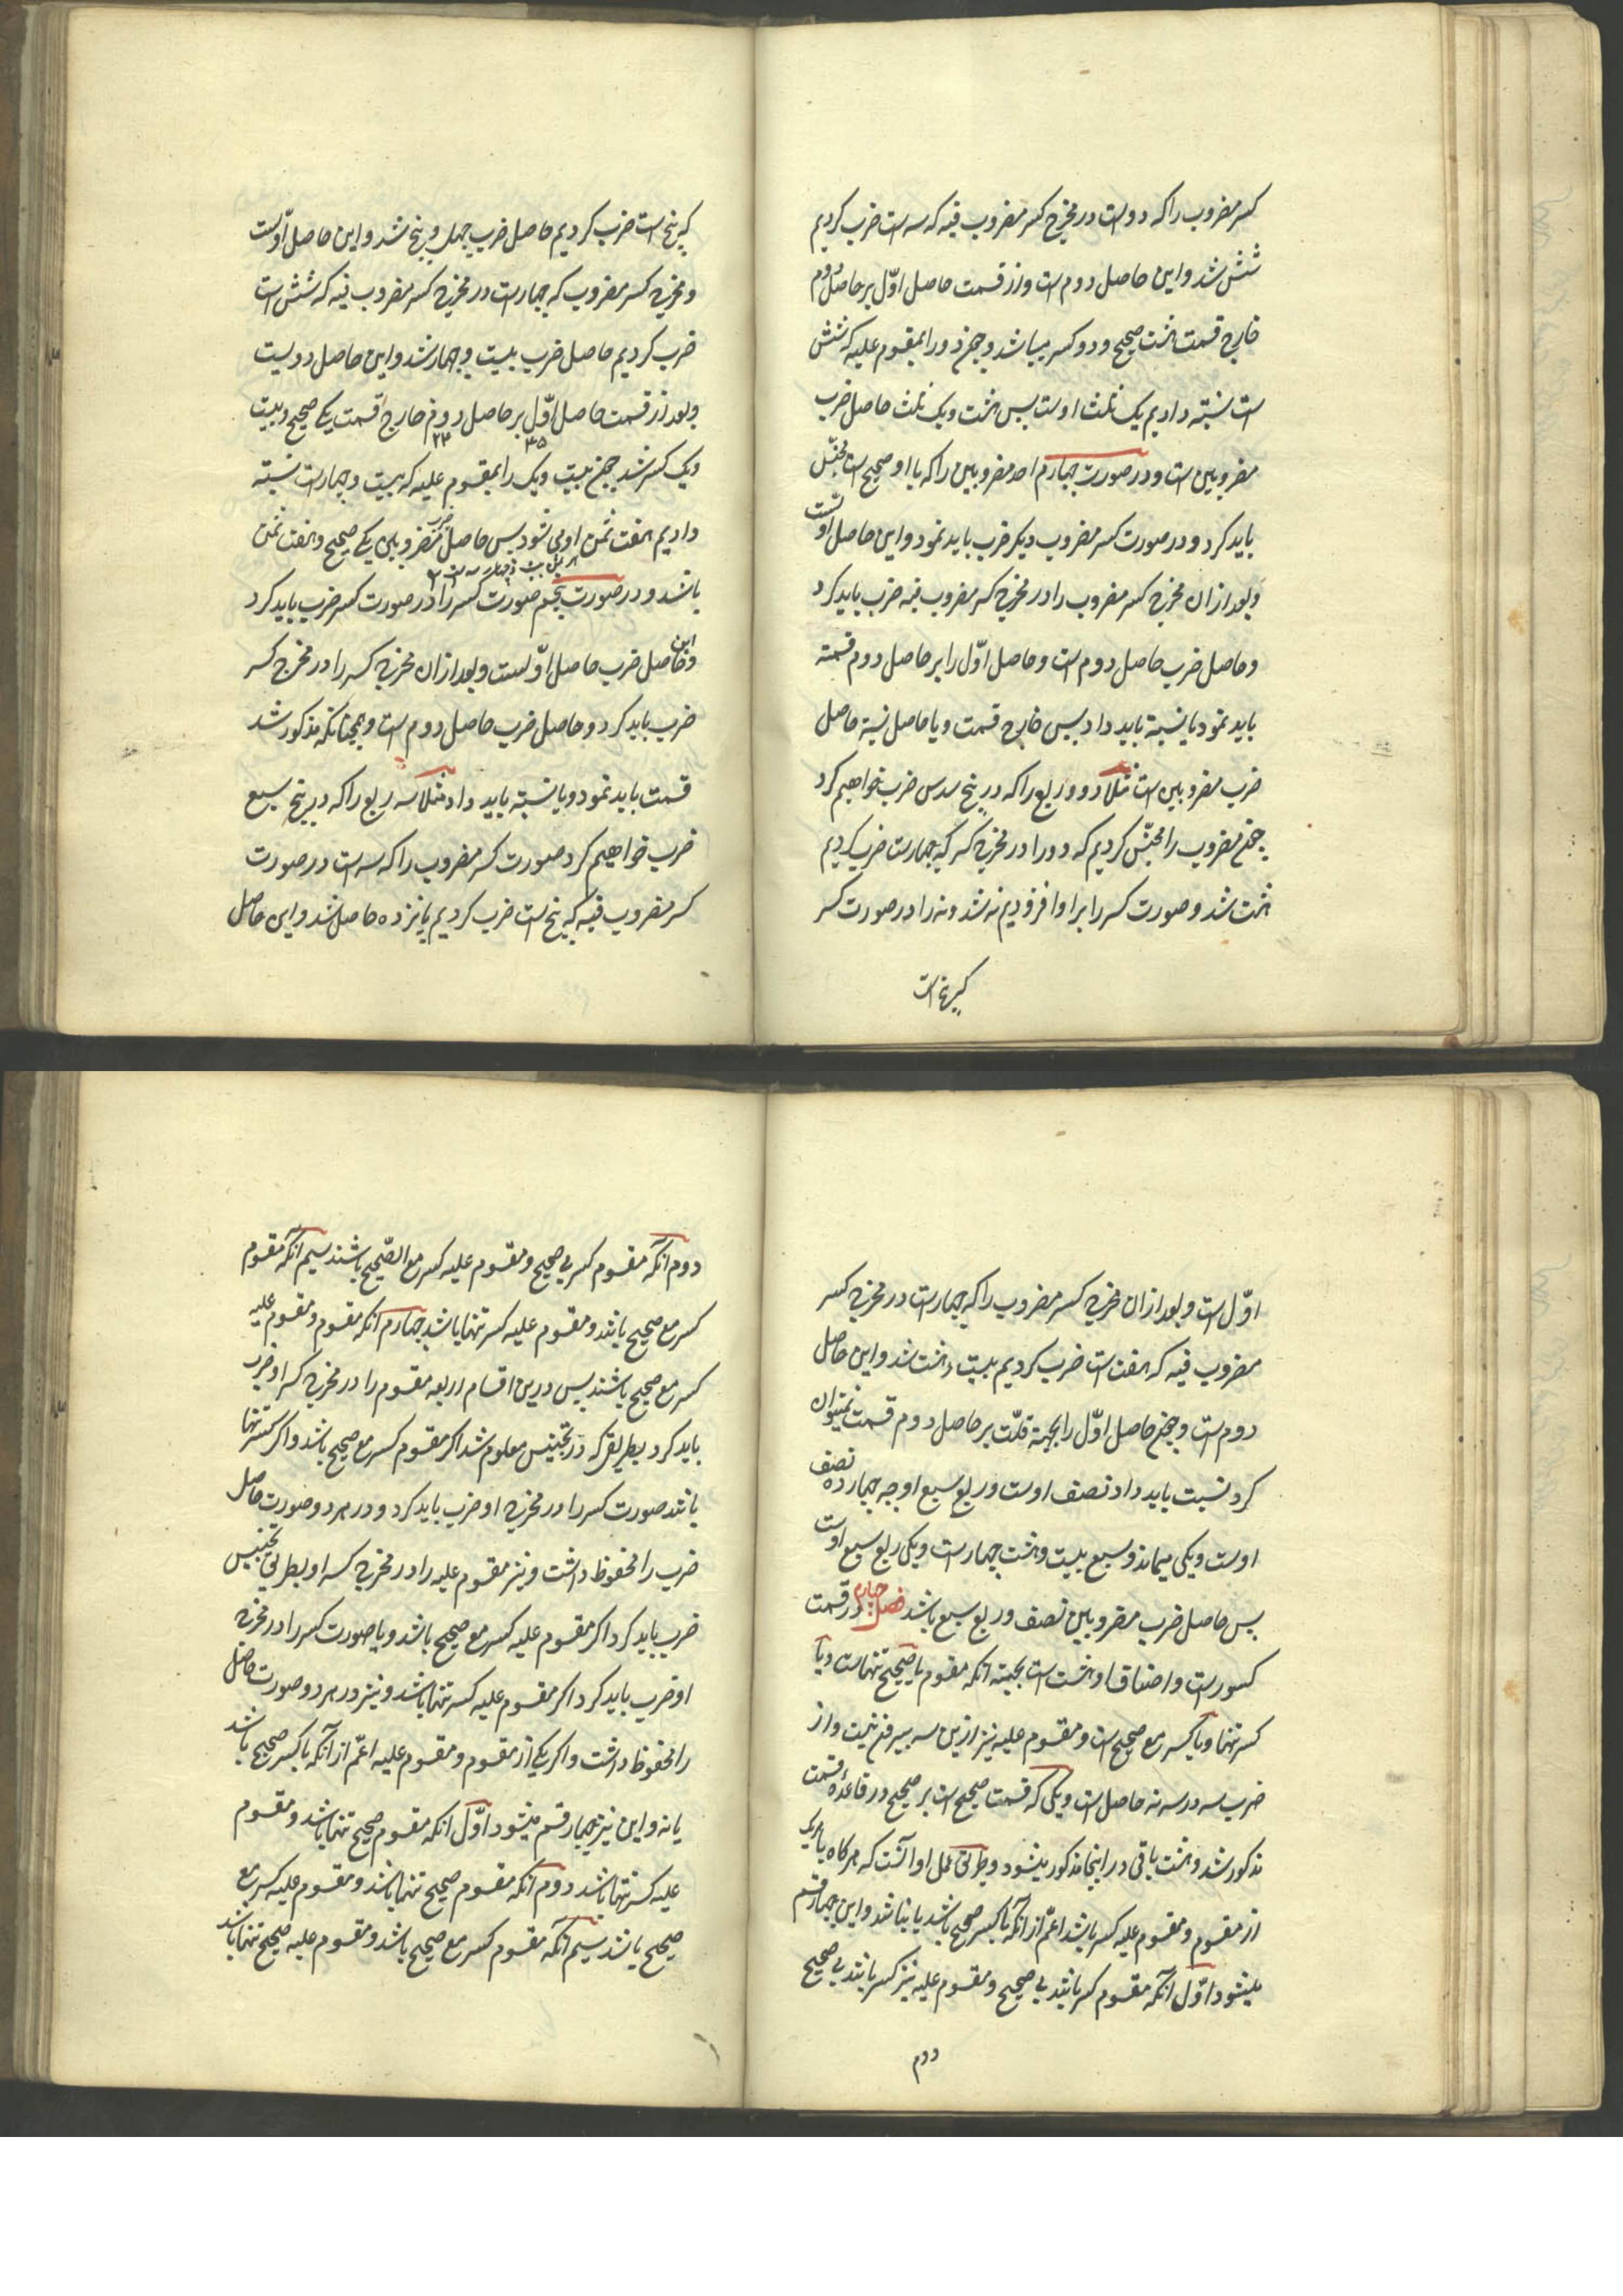 کسر مضروب را که دو است در مخرج کسر مضروب فیه که سه است ضرب کردیم
شش شد و این حاصل دوم است و از قسمت حاصل اوّل بر حاصل دوم
خارج قسمت هشت صحیح و دو کسر میباشد و چون دو را بمقسوم علیه که شش
است نسبته دادیم یک ثلث اوست پس هشت و یک ثلث حاصل ضرب
مضروبین است و در صورت چهارم احد مضروبین را که با او صحیح است مجنّس
باید کرد و در صورت کسر مضروب دیکر ضرب باید نمود و این حاصل اولست
و بعد از ان مخرج کسر مضروب را در مخرج کسر مضروب فیه ضرب باید کرد
و حاصل ضرب حاصل دوم است و حاصل اوّل را بر حاصل دوم قسمته
باید نمود یا نسبته باید داد پس خارج قسمت و یا حاصل نسبته حاصل
ضرب مضروبین است مثلا دو و ربع را که در پنج سدس ضرب خواهیم کرد
چون مضروب را مجنّس کردیم که دو را در مخرج کسر که چهارست ضرب کردیم
هشت شد و صورت کسر را برا و افزودیم نه شد و نه را در صورت کسر
که پنج است
که پنج است ضرب کردیم حاصل ضرب چهل و پنج شد و این حاصل اوّلست
و مخرج کسر مضروب که چهارست در مخرج کسر مضروب فیه که شش است
ضرب کردیم حاصل ضرب بیست و چهار شد و این حاصل دویست
و بعد از قسمت حاصل اوّل بر حاصل دوم خارج قسمت یکے صحیح و بیست
۴۵ ۲۴
و یک کسر شد چون بیست و یک را بمقسوم علیه که بیست و چهارست نسبته
دادیم هفت ثمن او می شود پس حاصل ضرب مضروبین یکے صحیح و هفت ثمن
باشد و در صورت پنجم صورت کسر را در صورت کسر ضرب باید کرد
و این حاصل ضرب حاصل اوّلست و بعد از ان مخرج کسر را در مخرج کسر
ضرب باید کرد و حاصل ضرب حاصل دوم است و همچنانکه مذکور شد
قسمت باید نمود و یا نسبته باید داد مثلا سه ربع را که در پنج سبع
ضرب خواهیم کرد صورت کسر مضروب را که سه است در صورت
کسر مضروب فیه که پنج است ضرب کردیم پانزده حاصل شد و این حاصل
اوّل است و بعد از ان مخرج کسر مضروب را که چهارست در مخرج کسر
مضروب فیه که هفت است ضرب کردیم بیست و هشت شد و این حاصل
دوم است و چون حاصل اوّل را بجهة قلّت بر حاصل دوم قسمت نمیتوان
کرد نسبت باید داد نصف اوست و ربع سبع او چه چهارده نصف
اوست و یکی میماند و سبع بیست و هشت چهارست و یکی ربع سبع اوست
پس حاصل ضرب مضروبین نصف و ربع سبع باشد فصل چهارم در قسمت
کسورست و اصناف او هشت است بجهته انکه مقسوم یا صحیح تنهاست و یا
کسر تنها و یا کسر مع صحیح است و مقسوم علیه نیز ازین سه بیرون نیست و از
ضرب سه در سه نه حاصل است و یکی که قسمت صحیح است بر صحیح در قاعدهٔ قسمت
مذکور شد و هشت باقی در اینجا مذکور میشود و طریق عمل او آنست که هرکاه با هر یک
از مقسوم و مقسوم علیه کسر باشد اعمّ از انکه با کسر صحیح باشد یا نباشد و این چهار قسم
میشود اوّل انکه مقسوم کسر باشد بی صحیح و مقسوم علیه نیز کسر باشد بی صحیح
دوم
دوم انکه مقسوم کسر بی صحیح و مقسوم علیه کسر مع الصّحیح باشند سیم انکه مقسوم
کسر مع صحیح باشد و مقسوم علیه کسر تنها باشد چهارم انکه مقسوم و مقسوم علیه
کسر مع صحیح باشند پس درین اقسام اربعه مقسوم را در مخرج کسر او ضرب
باید کرد بطریق که در تجنیس معلوم شد اکر مقسوم کسر مع صحیح باشد و اکر کسر تنها
باشد صورت کسر را در مخرج او ضرب باید کرد و در هر دو صورت حاصل
ضرب را محفوظ داشت و نیز مقسوم علیه را در مخرج کسر او بطریق تجنیس
ضرب باید کرد اکر مقسوم علیه کسر مع صحیح باشد و یا صورت کسر را در مخرج
او ضرب باید کرد اکر مقسوم علیه کسر تنها باشد و نیز در هر دو صورت حاصل
را محفوظ داشت و اکر یکے از مقسوم و مقسوم علیه اعمّ از آنکه با کسر صحیح باشد
یا نه و این نیز چهار قسم میشود اوّل انکه مقسوم صحیح تنها باشد و مقسوم
علیه کسر تنها باشد دوم انکه مقسوم صحیح تنها باشد و مقسوم علیه کسر مع
صحیح باشد سیم آنکه مقسوم کسر مع صحیح باشد و مقسوم علیه صحیح تنها باشد